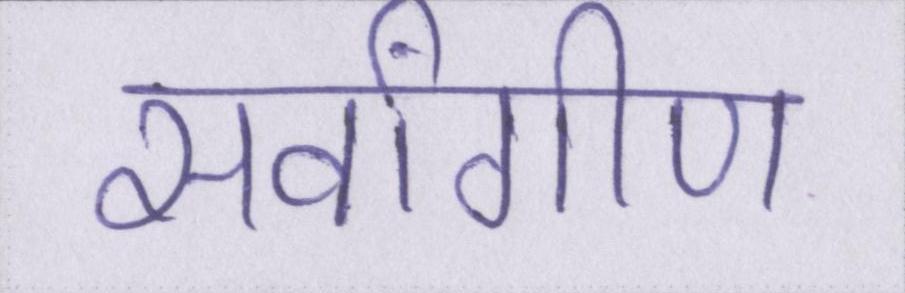 सर्वांगीण